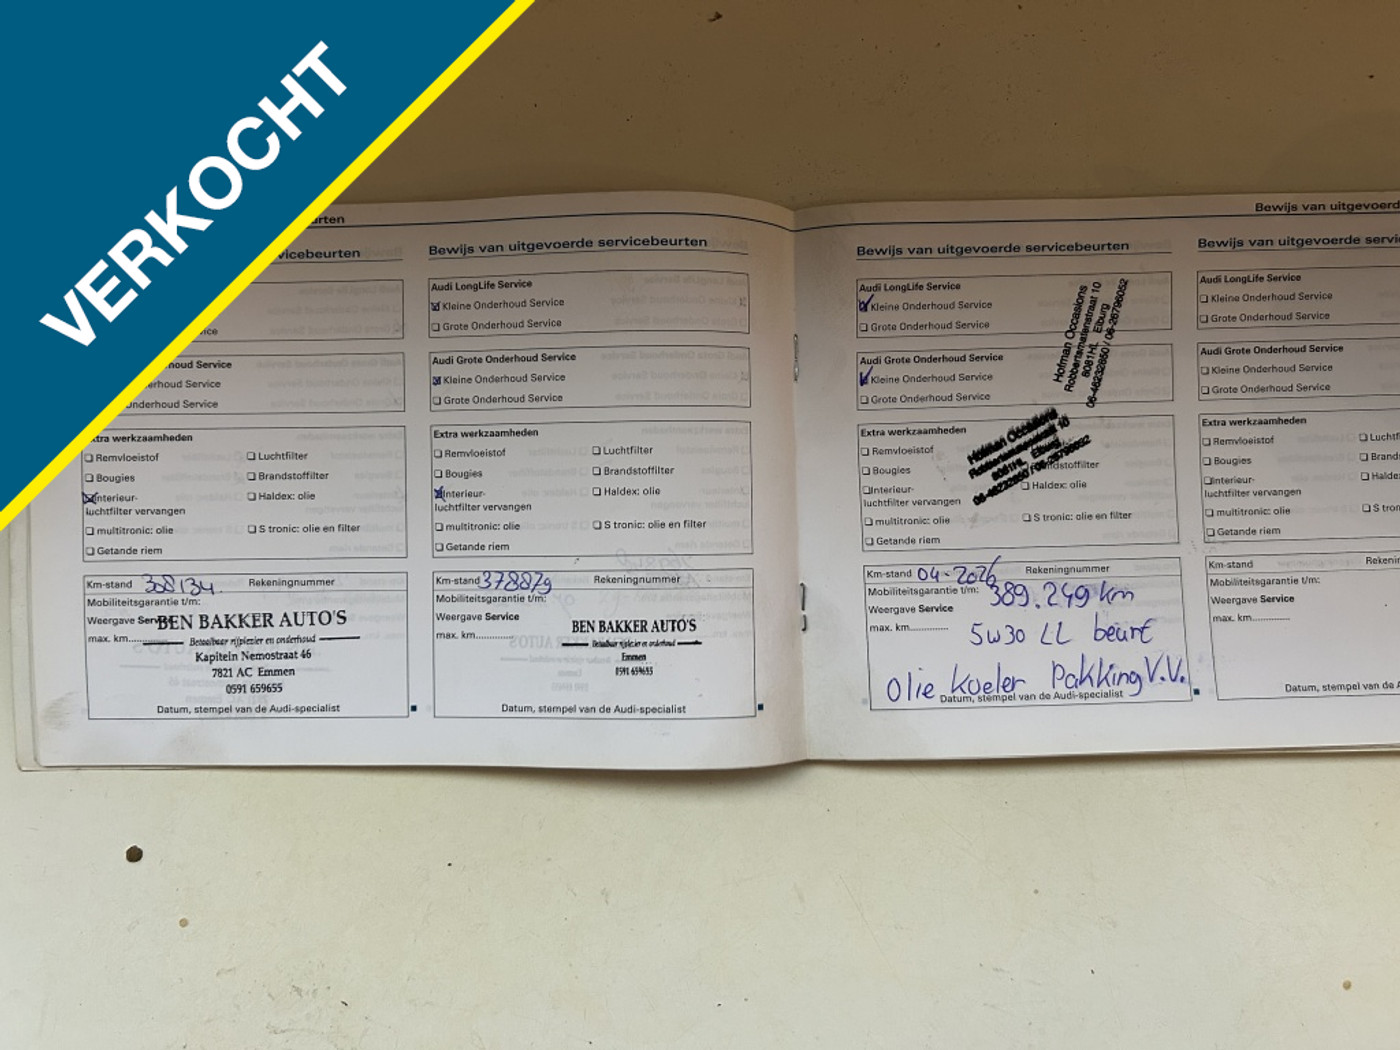 VERKOCHT
urten
vicebeurten
ice
houd Service
erhoud Service
nderhoud Service
xtra werkzaamheden
Remvloeistof
Luchtfilter
Bougies
Brandstoffilter
Interieur-
luchtfilter vervangen
Haldex: olie
multitronic: olie
S tronic: olie en filter
Getande riem
Km-stand
Rekeningnummer
Mobiliteitsgarantie t/m:
Weergave Serv
max. km.............
BEN BAKKER AUTO'S
Betaalbaar rijplezier en onderhoud
Kapitein Nemostraat 46
7821 AC Emmen
0591 659655
Datum, stempel van de Audi-specialist
Bewijs van uitgevoerde servicebeurten
Audi LongLife Service
Kleine Onderhoud Service
Grote Onderhoud Service
Audi Grote Onderhoud Service
Kleine Onderhoud Service
Grote Onderhoud Service
Extra werkzaamheden
Remvloeistof
Luchtfilter
Bougies
Brandstoffilter
Interieur-
luchtfilter vervangen
Haldex: olie
multitronic: olie
S tronic: olie en filter
Getande riem
Km-stand 378879
Rekeningnummer
Mobiliteitsgarantie t/m:
Weergave Service
max. km.............
BEN BAKKER AUTO'S
Betaalbaar rijplezier en onderhoud
Emmen
0591 659655
Datum, stempel van de Audi-specialist
Bewijs van uitgevoerde servicebeurten
Audi LongLife Service
Kleine Onderhoud Service
Grote Onderhoud Service
Audi Grote Onderhoud Service
Kleine Onderhoud Service
Grote Onderhoud Service
Hofman Occasions
Robbersmatenstraat 10
8081HL Elburg
06-46232850 / 06-26796052
Extra werkzaamheden
Remvloeistof
Bougies
Interieur-
luchtfilter vervangen
multitronic: olie
Getande riem
Hofman Occasions
Robbersmatenstraat 10
8081HL Elburg
06-46232850 / 06-26796052
ndstoffilter
Haldex: olie
S tronic: olie en filter
Km-stand 04-2026
Rekeningnummer
Mobiliteitsgarantie t/m:
389.249 km
Weergave Service
max. km.............
5w30 LL beurt
Olie Koeler Pakking V.V.
Datum, stempel van de Audi-specialist
Bewijs van uitgevoerd
Bewijs van uitgevoerde servic
Audi LongLife Service
Kleine Onderhoud Service
Grote Onderhoud Service
Audi Grote Onderhoud Service
Kleine Onderhoud Service
Grote Onderhoud Service
Extra werkzaamheden
Remvloeistof
Luchtf
Bougies
Brands
Interieur-
luchtfilter vervangen
Haldex
multitronic: olie
S tron
Getande riem
Km-stand
Rekenin
Mobiliteitsgarantie t/m:
Weergave Service
max. km.............
Datum, stempel van de A